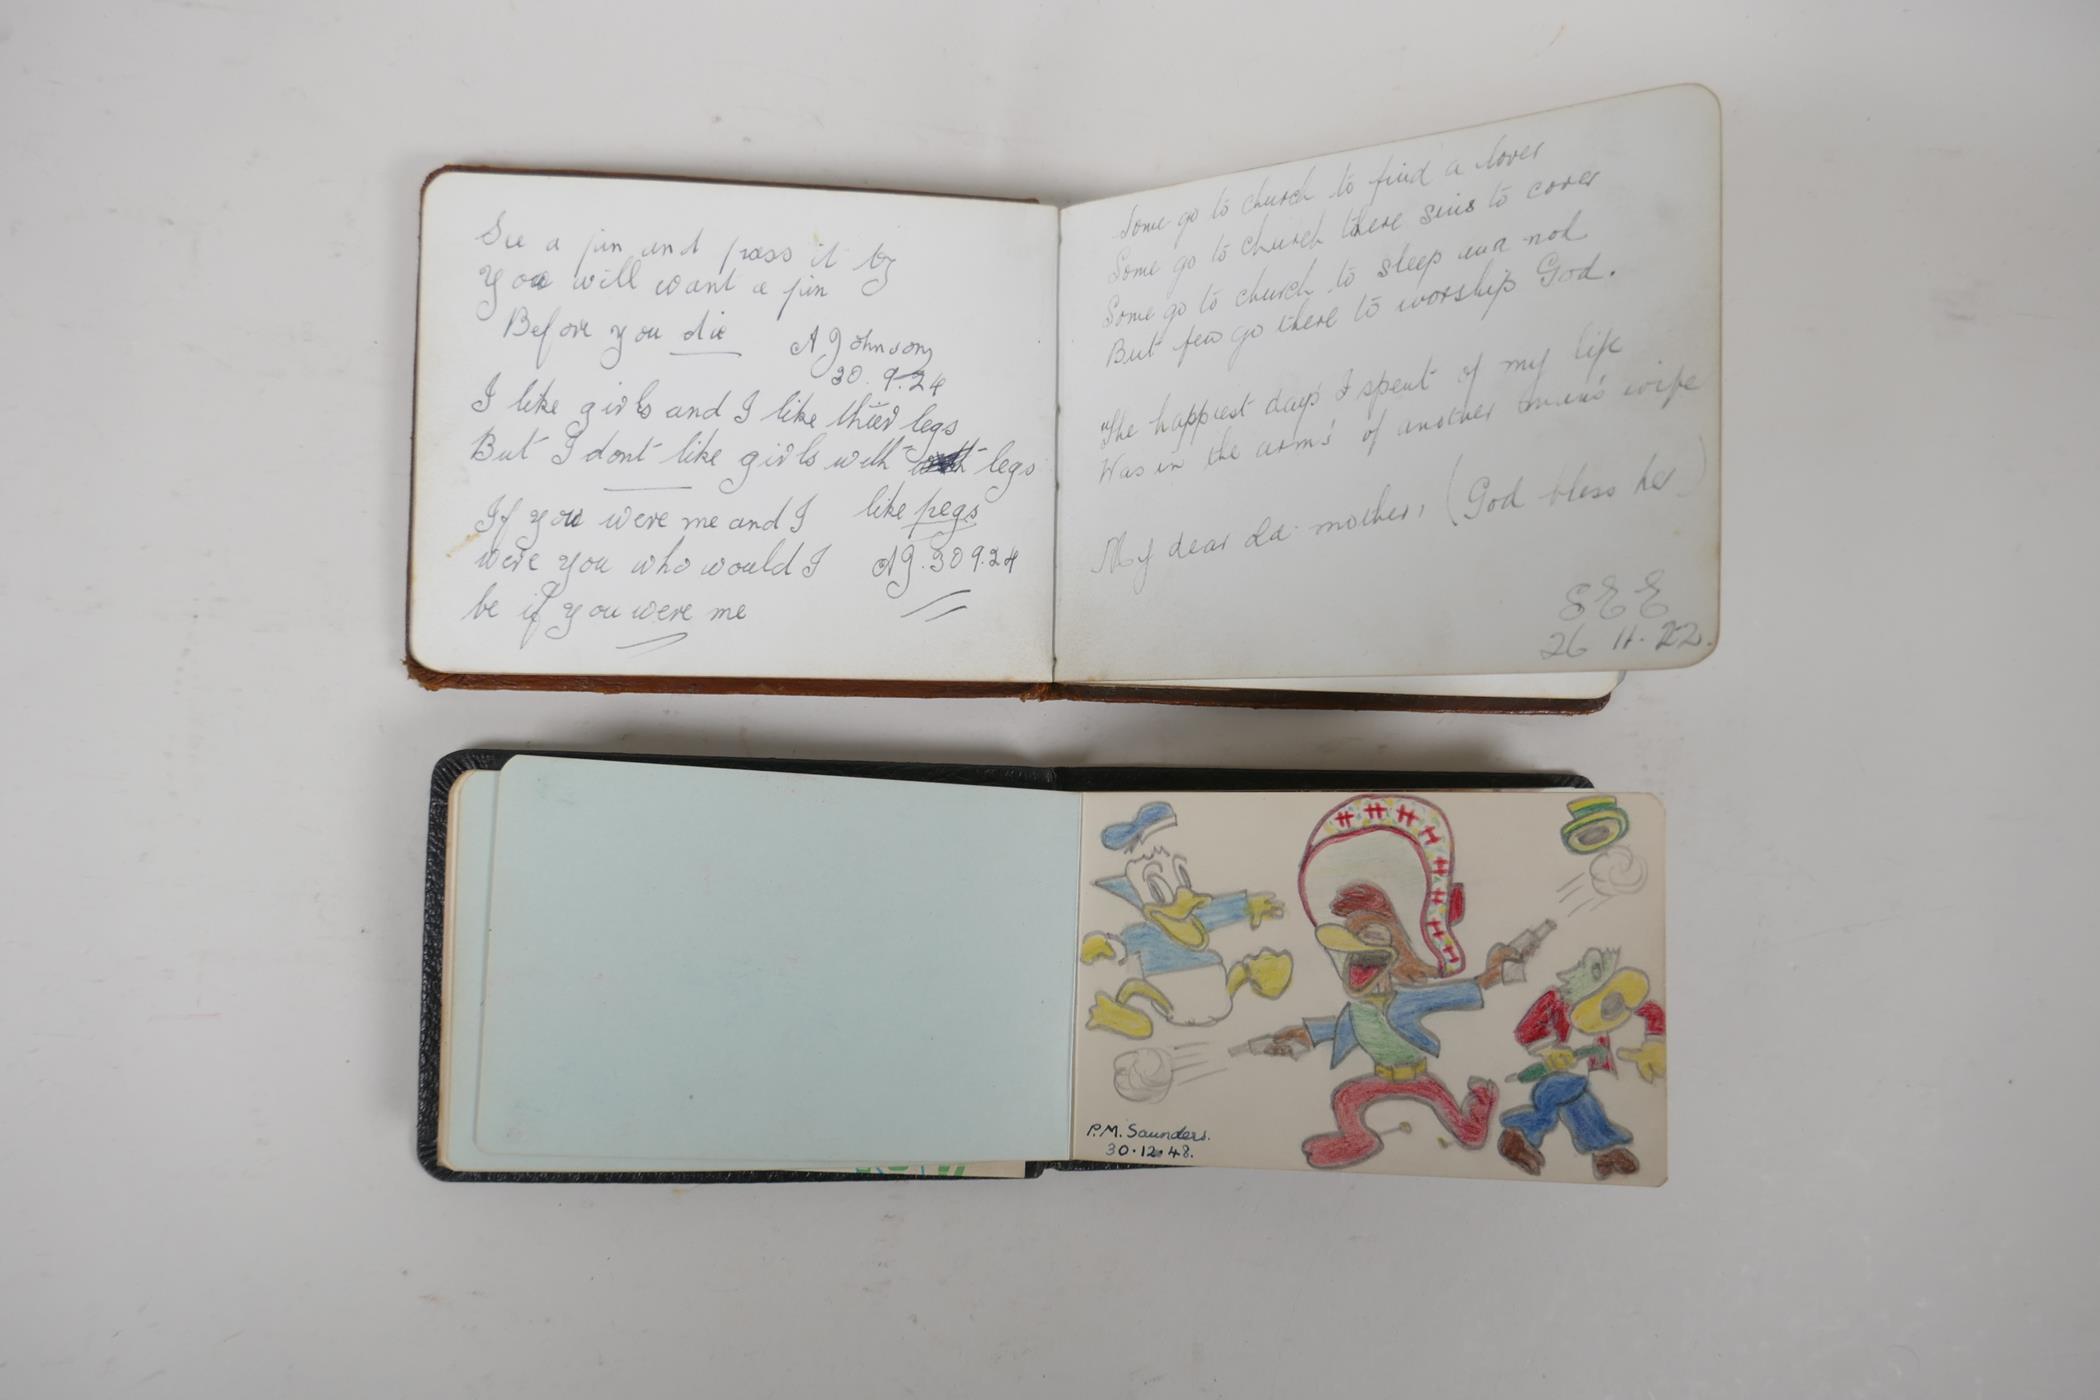 See a pin and pass it by
You will want a pin
Before you die
A Johnson
30.9.24
I like girls and I like thier legs
But I dont like girls with legs
like pegs
If you were me and I
were you who would I
AJ. 30 9.24
be if you were me
Some go to church to find a lover
Some go to church there sins to cover
Some go to church to sleep and nod
But few go there to worship God.
"The happiest days I spent of my life
Was in the arm's of another man's wife
My dear old mother, (God bless her)
S E E
26 11. 22.
P.M. Saunders.
30.12.48.